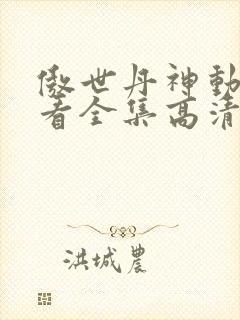 傲世丹神動
看全集高清
洪城農